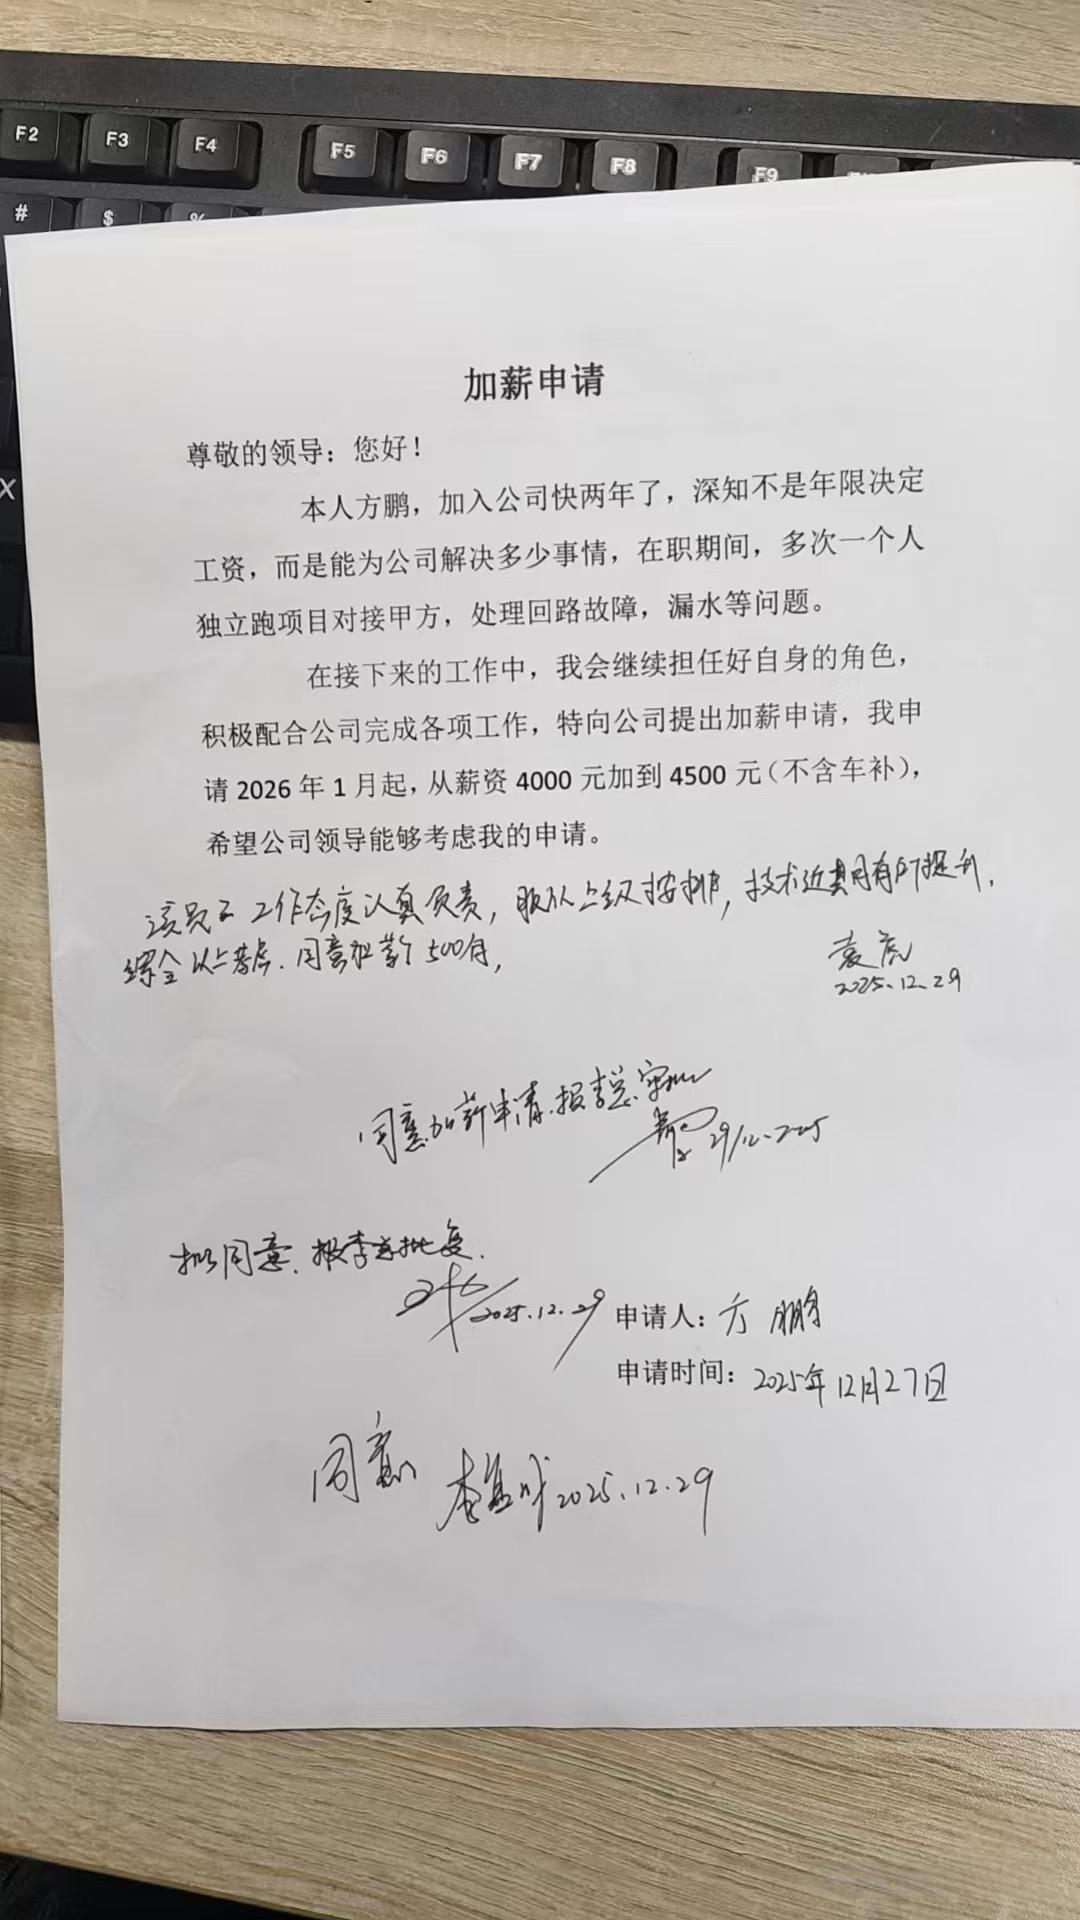 F2 F3 F4 F5 F6 F7 F8 F9
# $ %
X
加薪申请
尊敬的领导：您好！
本人方鹏，加入公司快两年了，深知不是年限决定
工资，而是能为公司解决多少事情，在职期间，多次一个人
独立跑项目对接甲方，处理回路故障，漏水等问题。
在接下来的工作中，我会继续担任好自身的角色，
积极配合公司完成各项工作，特向公司提出加薪申请，我申
请 2026 年 1 月起，从薪资 4000 元加到 4500 元（不含车补），
希望公司领导能够考虑我的申请。
该员工工作态度认真负责，服从上级安排，技术近期有所提升，
综合以上考虑，同意加薪500每月，
袁虎
2025.12.29
同意加薪申请，报李总审批
29/12-2025
拟同意，报李总批复．
2025.12.29
申请人：方鹏
申请时间：2025年12月27日
同意 2025.12.29